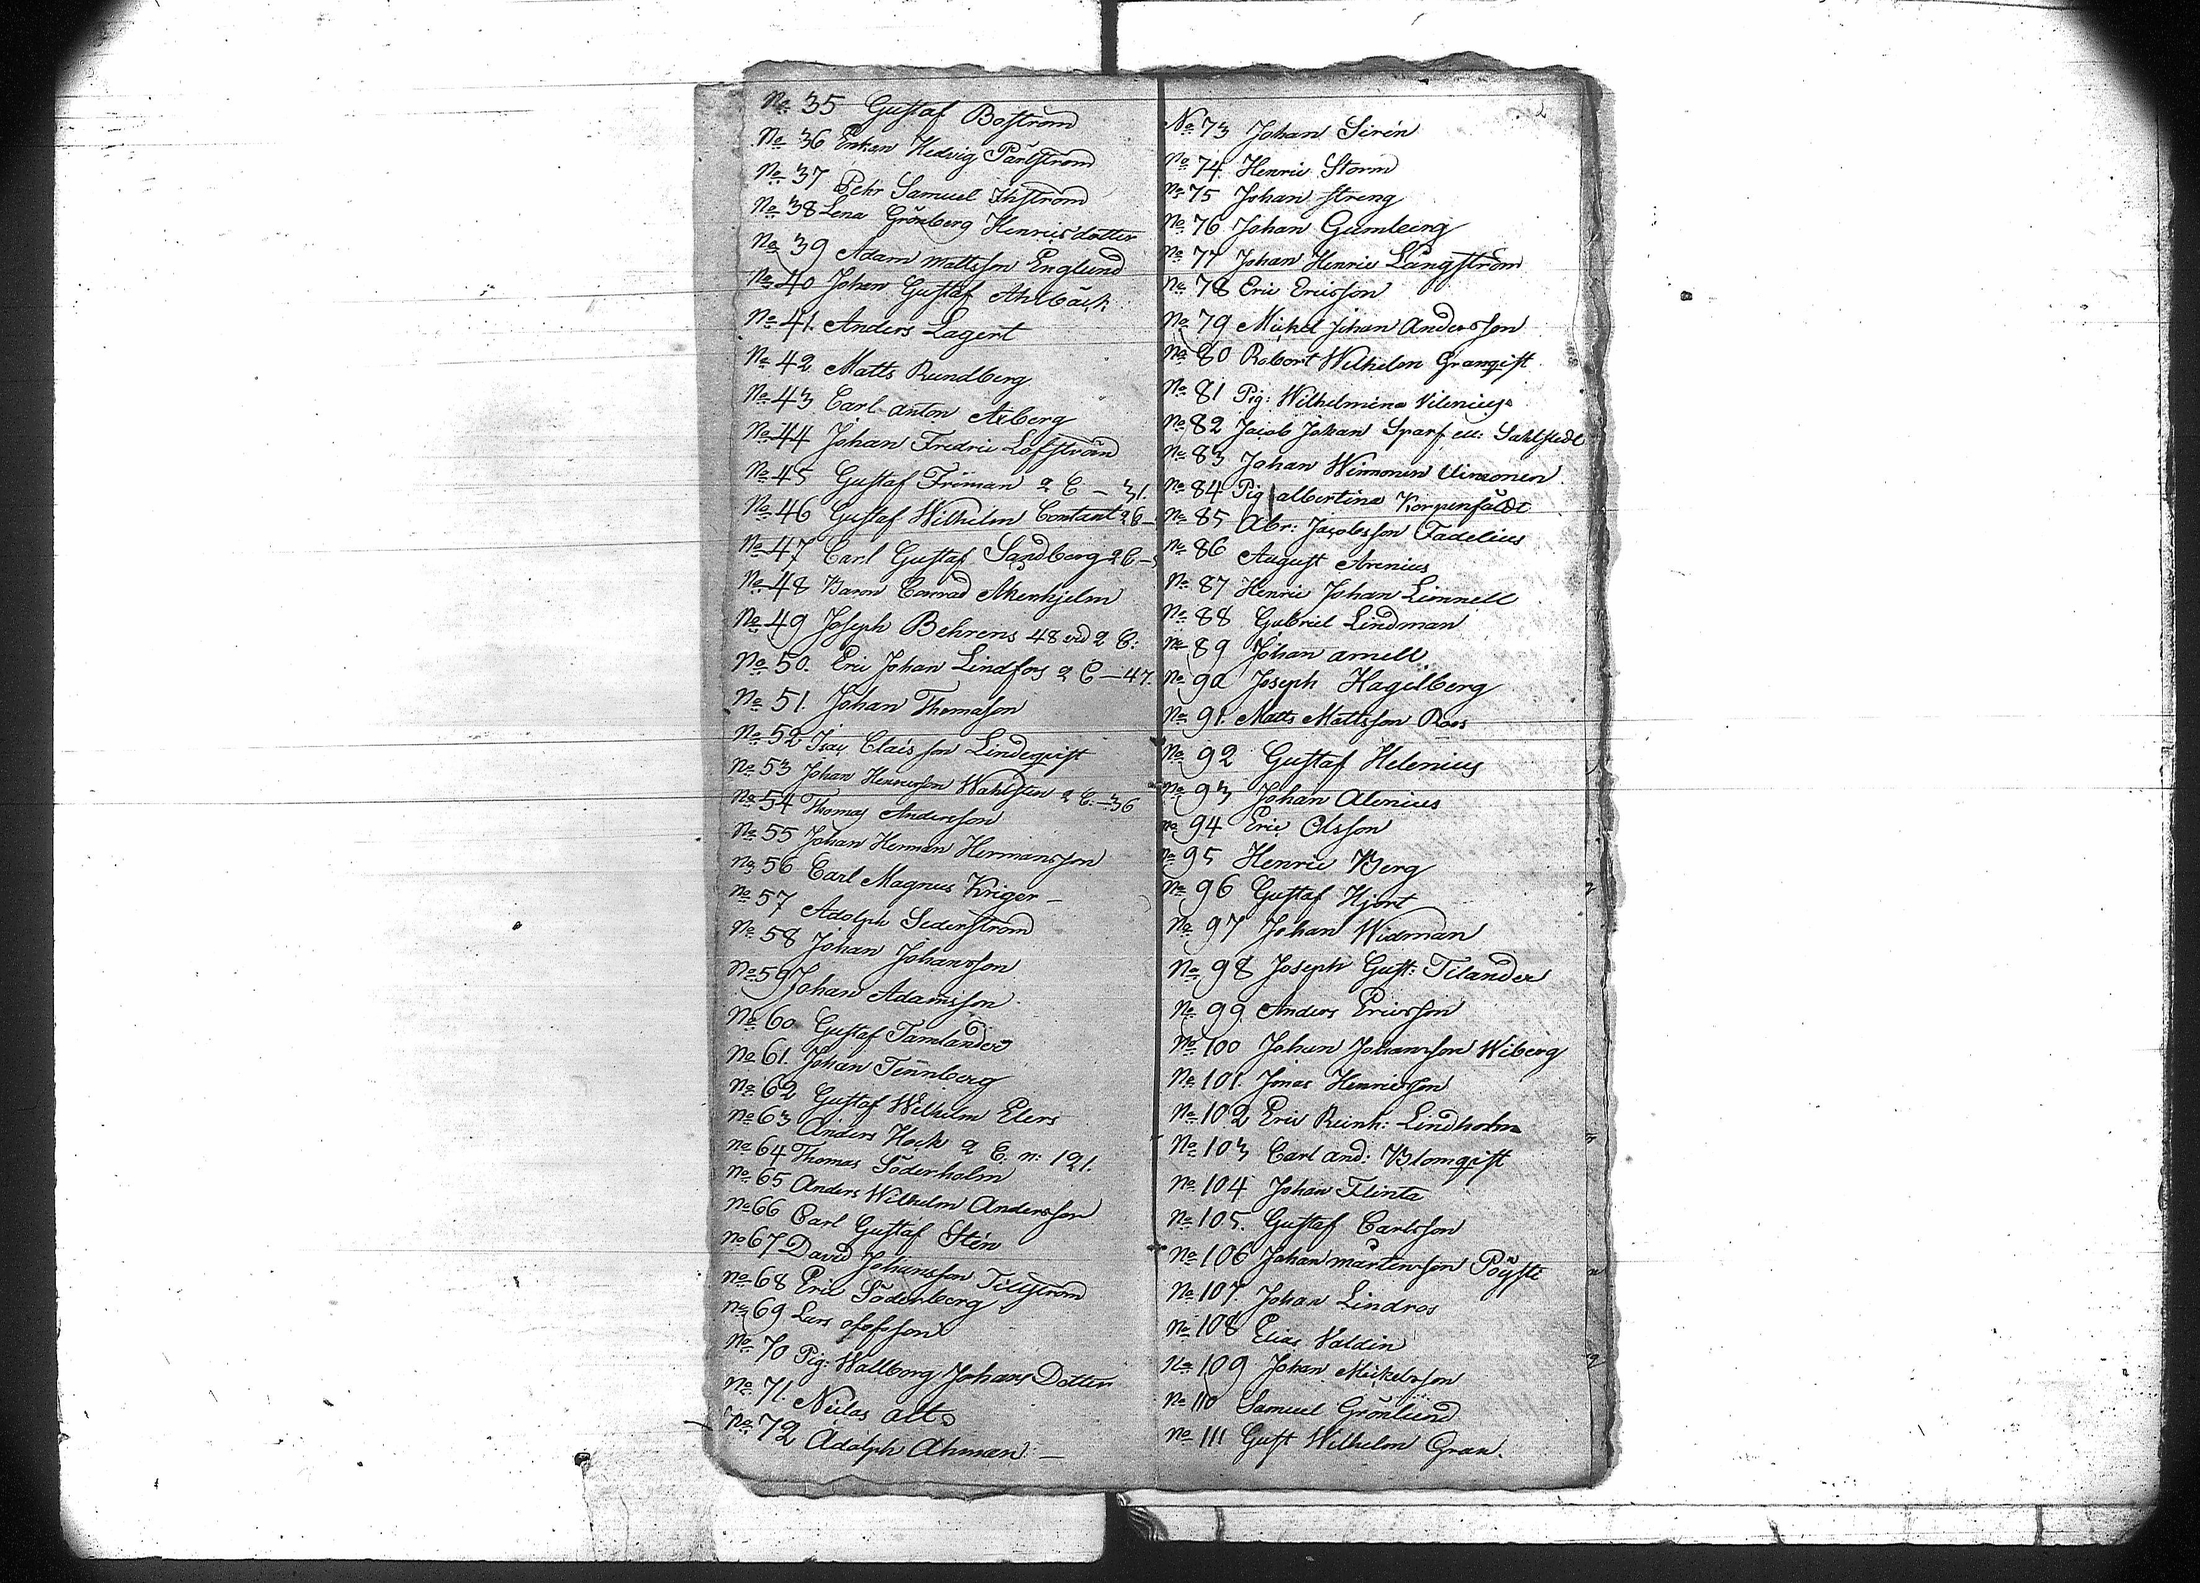 No 35 Gustaf Boström
No 36 Enkan Hedvig Pärlström
No 37 Pehr Samuel Ihström
No 38 Lena Grönberg Henricsdotter
No 39 Adam Mattsson Englund
No 40 Johan Gustaf Ahlbäck
No 41. Anders Lagert
No 42 Matts Rundberg
No 43 Carl anton Asberg
No 44 Johan Fredric Löfström
No 45 Gustaf Friman 2 C – 31.
No 46 Gustaf Wilhelm Contant 2 C –
No 47 Carl Gustaf Sandberg 2 C –
No 48 Baron Conrad Åkerhjelm
No 49 Joseph Behrens 48 vid 2 C:
No 50. Eric Johan Lindfors 2 C – 47.
No 51. Johan Thomasson
No 52 Isac Claisson Lindequist
No 53 Johan Henricsson Wahlsten 2 C. – 36
No 54 Thomas Andersson
No 55 Johan Herman Hermansson
No 56 Carl Magnus Kriger –
No 57 Adolph Sederström
No 58 Johan Johansson
No 59 Johan Adamsson
No 60 Gustaf Tamlander
No 61. Johan Tennberg
No 62 Gustaf Wilhelm Elers
No 63 Anders Hock 2 C. n: 121.
No 64 Thomas Söderholm
No 65 Anders Wilhelm Andersson
No 66 Carl Gustaf Stén
No 67 David Johansson Tillström
No 68 Eric Söderberg
No 69 Lars olofsson
No 70 Pig: Wallborg Johans Dotter
No 71. Niclas alt
No 72 Adolph Åhman: –
2
No 73 Johan Sirén
No 74. Henric Storm
No 75 Johan streng
No 76 Johan Gumberg
No 77 Johan Henric Långström
No 78 Eric Ericsson
No 79 Michel Johan Andersson
No 80 Robert Wilhelm Granqist
No 81 Pig: Wilhelmina Vilenius
No 82 Jacob Johan Sparf ell: Sahlstedt
No 83 Johan Wimonen Uimonen
No 84 Pig albertina Korpenfäldt
No 85 Abr: Jacobsson Fadelius
No 86 August Arenius
No 87 Henric Johan Limnell
No 88 Gabriel Lindman
No 89 Johan arnell
No 90 Joseph Hagelberg
No 91. Matts Mattsson Roos
No 92 Gustaf Helenius
No 93 Johan Alenius
No 94 Eric Olsson
No 95 Henric Berg
No 96 Gustaf Hjort
No 97 Johan Widman
No 98 Joseph Gust: Tilander
No 99 Anders Ericsson
No 100 Johan Johansson Wiberg
No 101. Jonas Henricsson
No 102 Eric Reinh: Lindholm
No 103 Carl and: Blomqist
No 104 Johan Flinta
No 105. Gustaf Carlsson
No 106 Johan mårtensson Pöysti
No 107. Johan Lindros
No 108 Elias Valdin
No 109 Johan Mickelsson
No 110 Samuel Grönlund
No 111 Gust Wilhelm Gran.